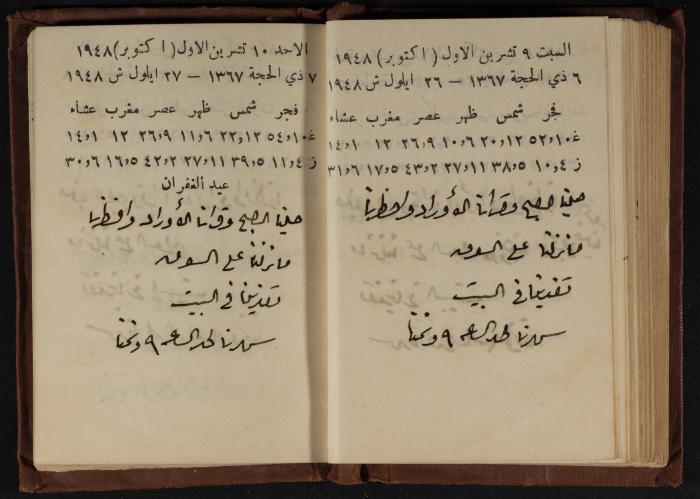 السبت ٩ تشرين الاول (اكتوبر) ١٩٤٨
٦ ذي الحجة ١٣٦٧ — ٢٦ ايلول ش ١٩٤٨
فجر شمس ظهر عصر مغرب عشاء
غ ١٠و٥٢ ١٢و٢٠ ٦و١٠ ٩و٢٦ ١٢ ١و١٤
ز ٤و١٠ ٥و٣٨ ١١و٢٧ ٢و٤٣ ٥و١٧ ٦و٣١
صلينا الصبح وقرأنا الأوراد وافطرنا
ما نزلنا على السوق
تغدينا في البيت
سهرنا لحد الساعه ٩ ونمنا
الاحد ١٠ تشرين الاول (اكتوبر) ١٩٤٨
٧ ذي الحجة ١٣٦٧ — ٢٧ ايلول ش ١٩٤٨
فجر شمس ظهر عصر مغرب عشاء
غ ١٠و٥٤ ١٢و٢٢ ٦و١١ ٩و٢٦ ١٢ ١و١٤
ز ٤و١١ ٥و٣٩ ١١و٢٧ ٢و٤٢ ٥و١٦ ٦و٣٠
عيد الغفران
صلينا الصبح وقرأنا الأوراد وافطرنا
ما نزلنا على السوق
تغدينا في البيت
سهرنا لحد الساعه ٩ ونمنا